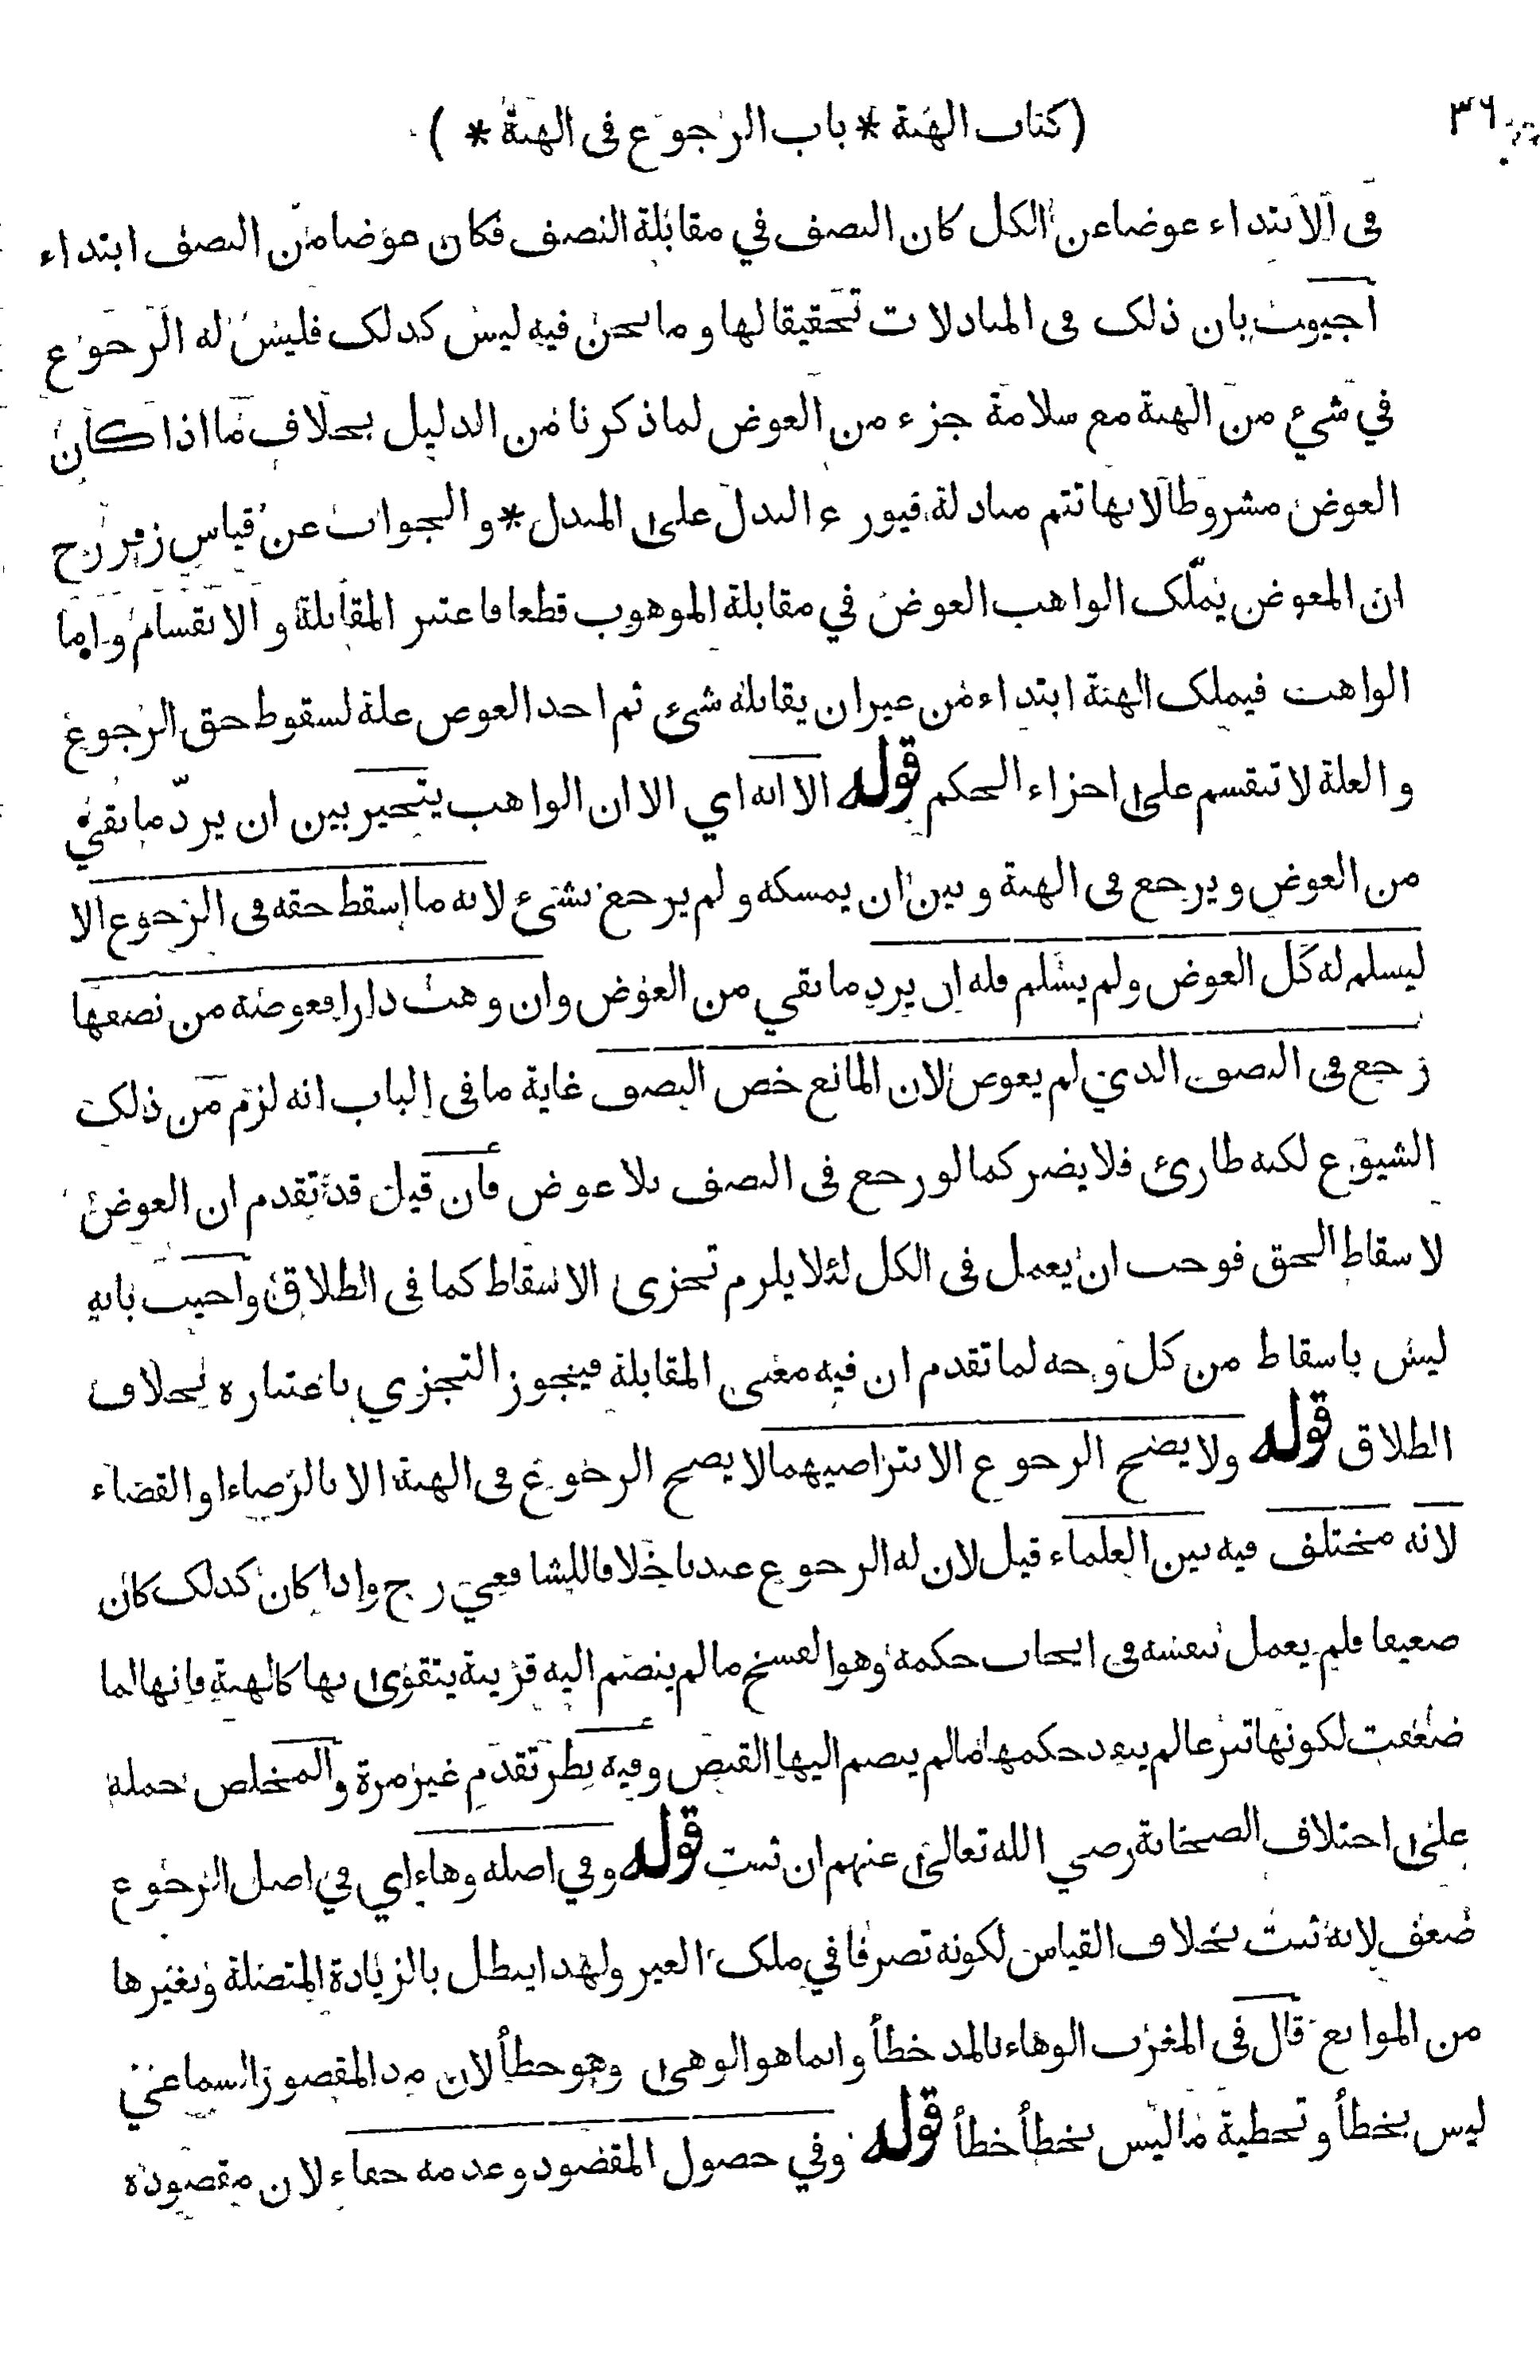 ٣٦
( كتاب الهبة * باب الرجوع في الهبة * )
في الابتداء عوضا عن الكل كان النصف في مقابلة النصف فكان عوضا من النصف ابتداء
اجيب بان ذلك في المبادلات تحقيقا لها وما نحن فيه ليس كذلك فليس له الرجوع
في شيء من الهبة مع سلامة جزء من العوض لما ذكرنا من الدليل بخلاف ما اذا كان
العوض مشروطا لانها تتم مبادلة فيوزع البدل على المبدل * والجواب عن قياس زفر رح
ان المعوض يملّك الواهب العوض في مقابلة الموهوب قطعا فاعتبر المقابلة والانقسام واما
الواهب فيملك الهبة ابتداء من غير ان يقابله شيء ثم اخذ العوض علة لسقوط حق الرجوع
والعلة لا تنقسم على اجزاء الحكم قوله الا انه اي الا ان الواهب يتخير بين ان يردّ ما بقي
من العوض ويرجع في الهبة وبين ان يمسكه ولم يرجع بشيء لانه ما اسقط حقه في الرجوع الا
ليسلم له كل العوض ولم يسلم فله ان يرد ما بقي من العوض وان وهب دارا فعوضه من نصفها
رجع في النصف الذي لم يعوض لان المانع خص النصف غاية ما في الباب انه لزم من ذلك
الشيوع لكنه طارئ فلا يضر كما لو رجع في النصف بلا عوض فان قيل قد تقدم ان العوض
لاسقاط الحق فوجب ان يعمل في الكل لئلا يلزم تجزى الاسقاط كما في الطلاق واجيب بانه
ليس باسقاط من كل وجه لما تقدم ان فيه معنى المقابلة فيجوز التجزي باعتباره بخلاف
الطلاق قوله ولا يصح الرجوع الا بتراضيهما لا يصح الرجوع في الهبة الا بالرضاء او القضاء
لانه مختلف فيه بين العلماء قيل لان له الرجوع عندنا خلافا للشافعي رح واذا كان كذلك كان
ضعيفا فلم يعمل بنفسه في ايجاب حكمه وهو الفسخ ما لم ينضم اليه قرينة يتقوى بها كالهبة فانها لما
ضعفت لكونها تبرعا لم يفد حكمها ما لم ينضم اليها القبض وفيه نظر تقدم غير مرة والمخلص حمله
على اختلاف الصحابة رضي الله تعالى عنهم ان ثبت قوله وفي اصله وهاء اي في اصل الرجوع
ضعف لانه ثبت بخلاف القياس لكونه تصرفا في ملك الغير ولهذا يبطل بالزيادة المتصلة وبغيرها
من الموانع قال في المغرب الوهاء بالمد خطأ وانما هو الوهى وهو خطأ لان مد المقصور السماعي
ليس بخطأ وتخطية ما ليس بخطأ خطأ قوله وفي حصول المقصود وعدمه خفاء لان مقصوده